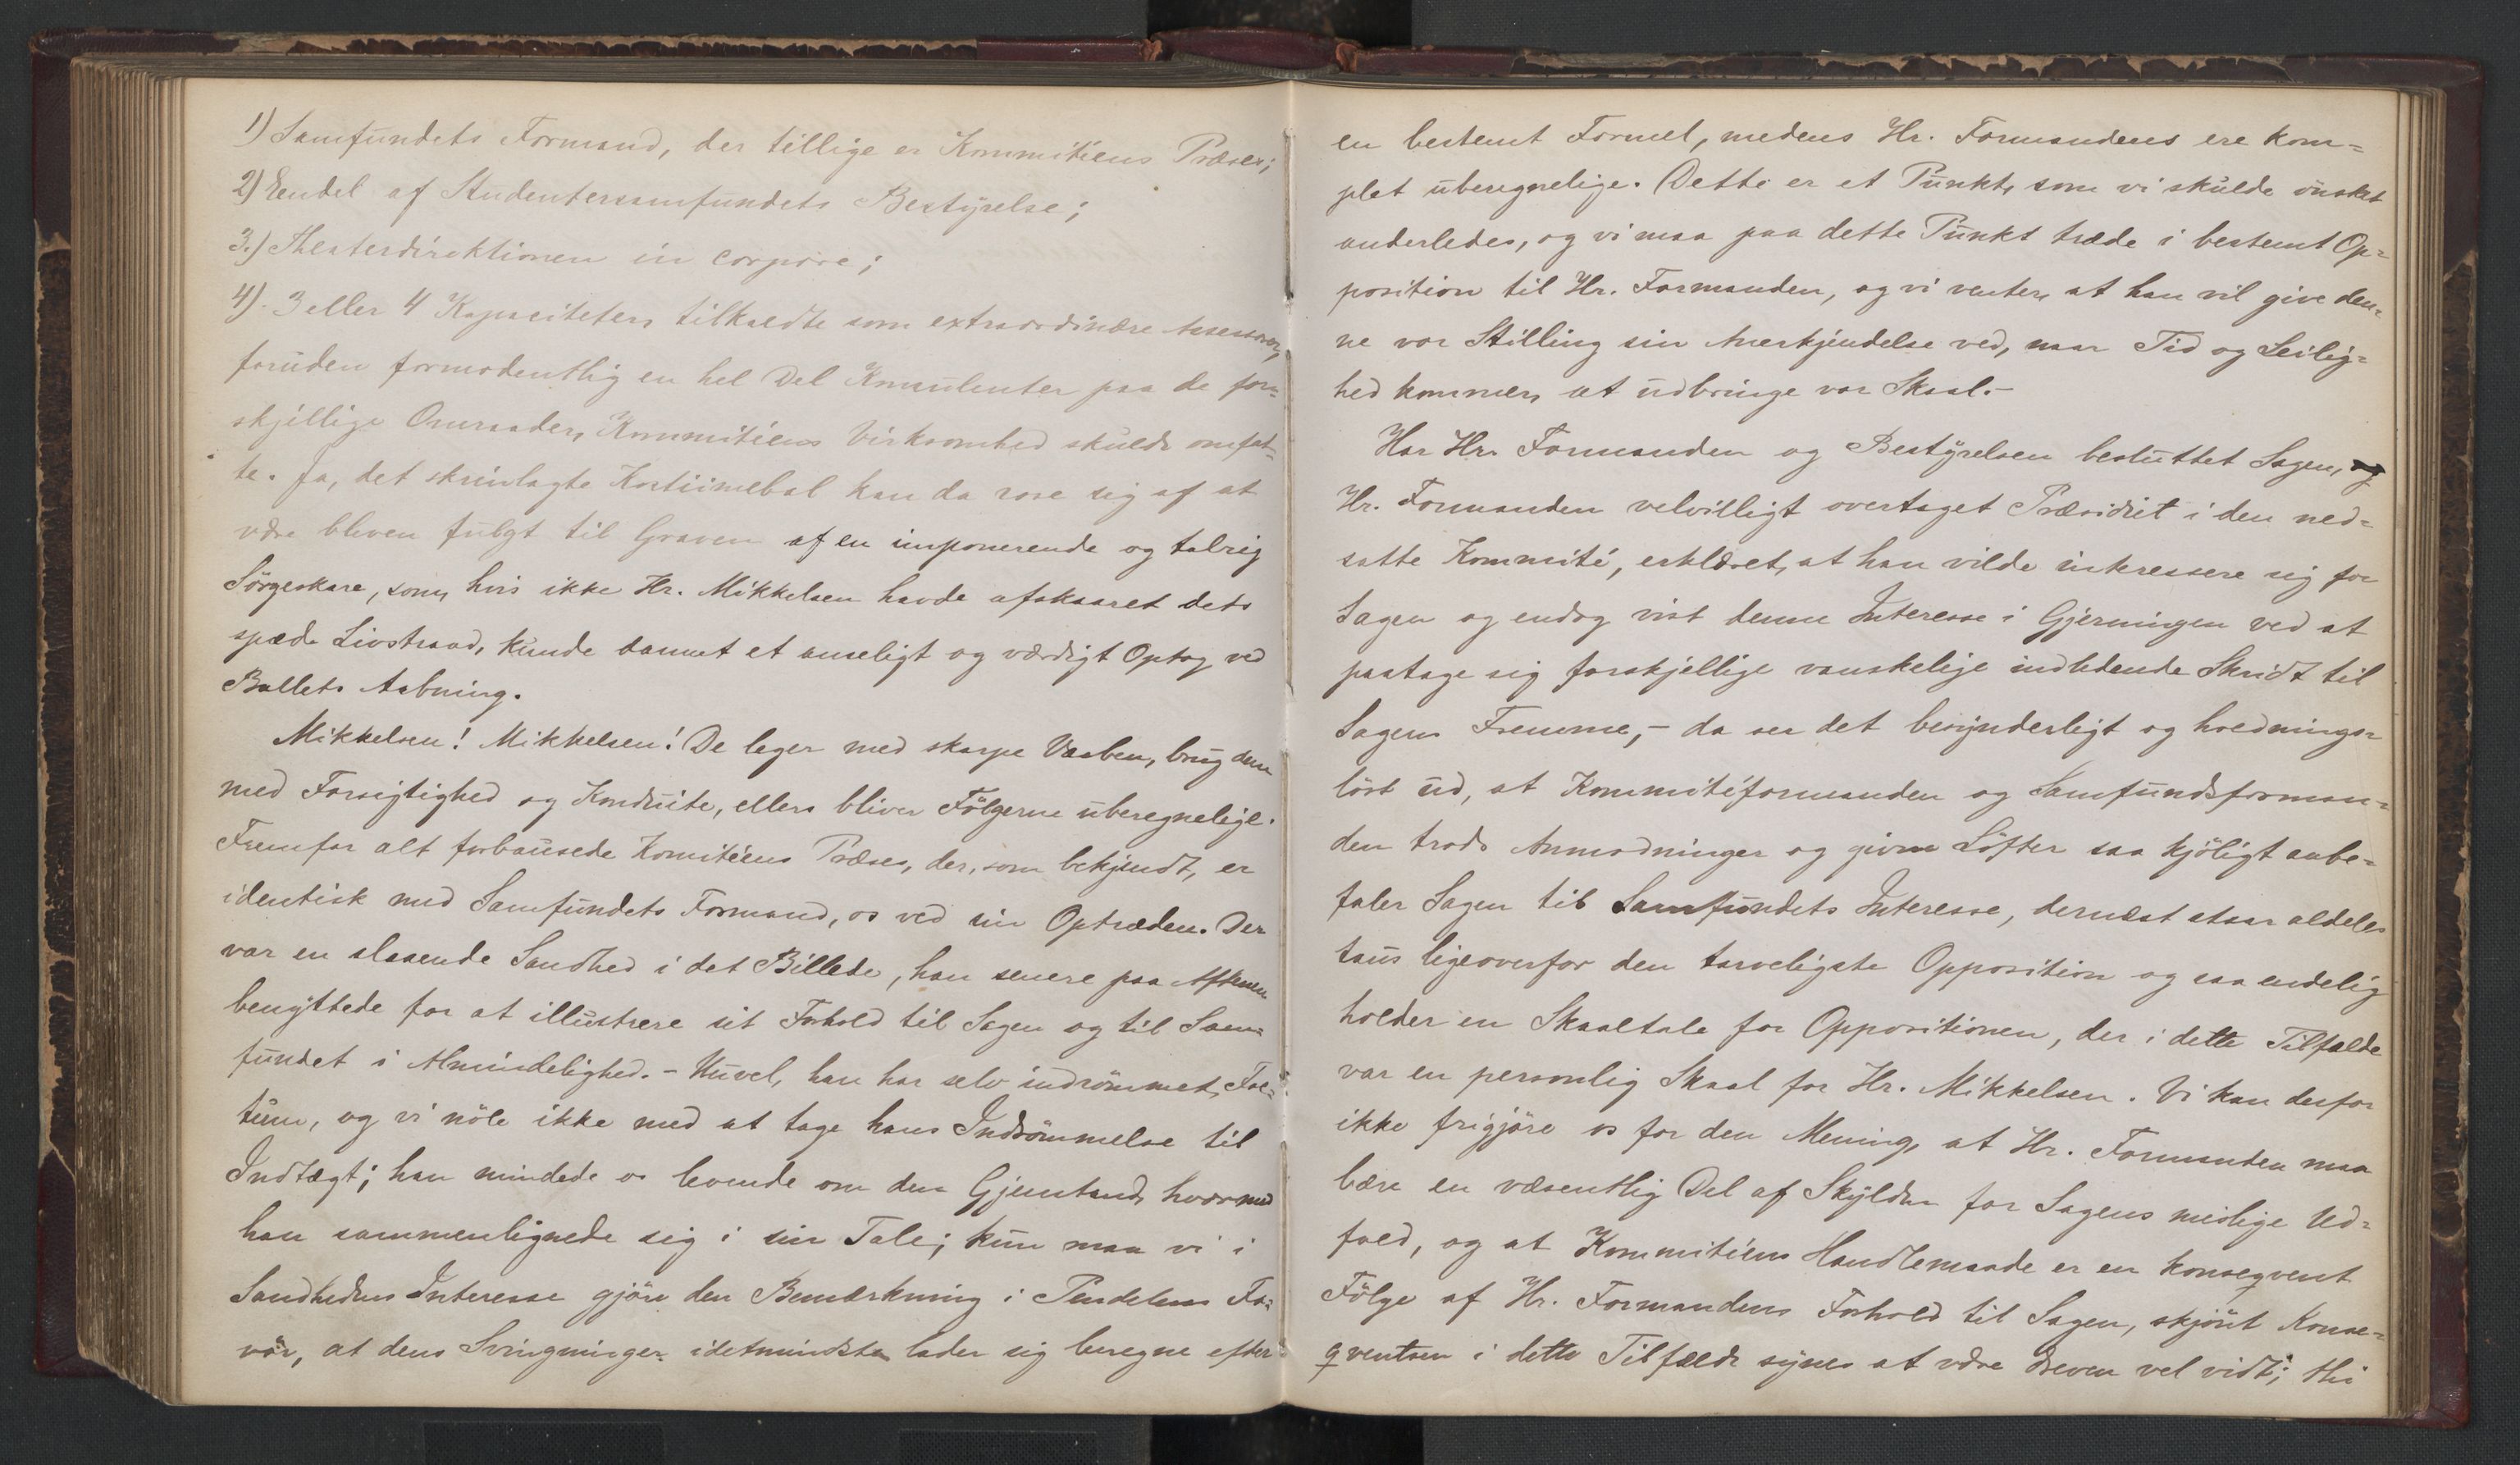 1) Samfundets Formand, der tillige er Kommitéens Præses;
2) Eendel af Studentersamfundets Bestyrelse;
3.) Theaterdirektionen in corpore;
4). 3 eller 4 Kapaciteter, tilkaldte som extraordinære Assessorer,
foruden formodentlig en hel Del Konsulenter paa de for=
skjellige Omraader, Kommitéens Virksomhed skulde omfat=
te. Ja, det skrinlagte Kostümebal kan da rose sig af at
være bleven fulgt til Graven af en imponerende og talrig
Sörgeskare, som, hvis ikke Hr. Mikkelsen havde afskaaret dets
spæde Livstraad, kunde dannet et anseligt og værdigt Optog ved
Ballets Aabning.
Mikkelsen! Mikkelsen! De leger med skarpe Vaaben, brug dem
med Forsigtighed og Konduite, ellers bliver Fölgerne uberegnelige.
Fremfor alt forbausede Komitéens Præses, der, som bekjendt, er
identisk med Samfundets Formand, os ved sin Optræden. Der
var en slaaende Sandhed i det Billede, han senere paa Aftenen
benyttede for at illustrere sit Forhold til Sagen og til Sam=
fundet i Almindelighed. - Nuvel, han har selv indrömmet Fac=
tum, og vi nöle ikke med at tage hans Indrömmelse til
Indtægt; han mindede os levende om den Gjenstand, hvormed
han sammenlignede sig i sin Tale; kun maa vi i
Sandhedens Interesse gjöre den Bemærkning i Pendelens Fa=
vör, at dens Svingninger idetmindste lader sig beregne efter
en bestemt Formel, medens Hr. Formandens ere kom=
plet uberegnelige. Dette er et Punkt, som vi skulde önsket
anderledes, og vi maa paa dette Punkt træde i bestemt Op=
position til Hr. Formanden, og vi venter, at han vil give den=
ne vor Stilling sin Anerkjendelse ved, naar Tid og Leilig=
hed kommer, at udbringe vor Skaal.-
Har Hr. Formanden og Bestyrelsen besluttet Sagen, og
Hr. Formanden velvilligt overtaget Præsidiet i den ned=
satte Kommité, erklæret, at han vilde interessere sig for
Sagen og endog vist denne Interesse i Gjerningen ved at
paatage sig forskjellige vanskelige indledende Skridt til
Sagens Fremme, - da ser det besynderligt og holdnings=
löst ud, at Kommitéformanden og Samfundsforman=
den trods Anmodninger og givne Löfter saa kjöligt anbe=
faler Sagen til Samfundets Interesse, dernæst staar aldeles
taus ligeoverfor den tarveligste Opposition og saa endelig
holder en Skaaltale for Oppositionen, der i dette Tilfælde
var en personlig Skaal for Hr. Mikkelsen. Vi kan derfor
ikke frigjöre os for den Mening, at Hr. Formanden maa
bære en væsentlig Del af Skylden for Sagens uheldige Ud=
fald, og at Kommitéens Handlemaade er en konseqvent
Fölge af Hr. Formandens Forhold til Sagen, skjönt Konse=
qventsen i dette Tilfælde synes at være dreven vel vidt;